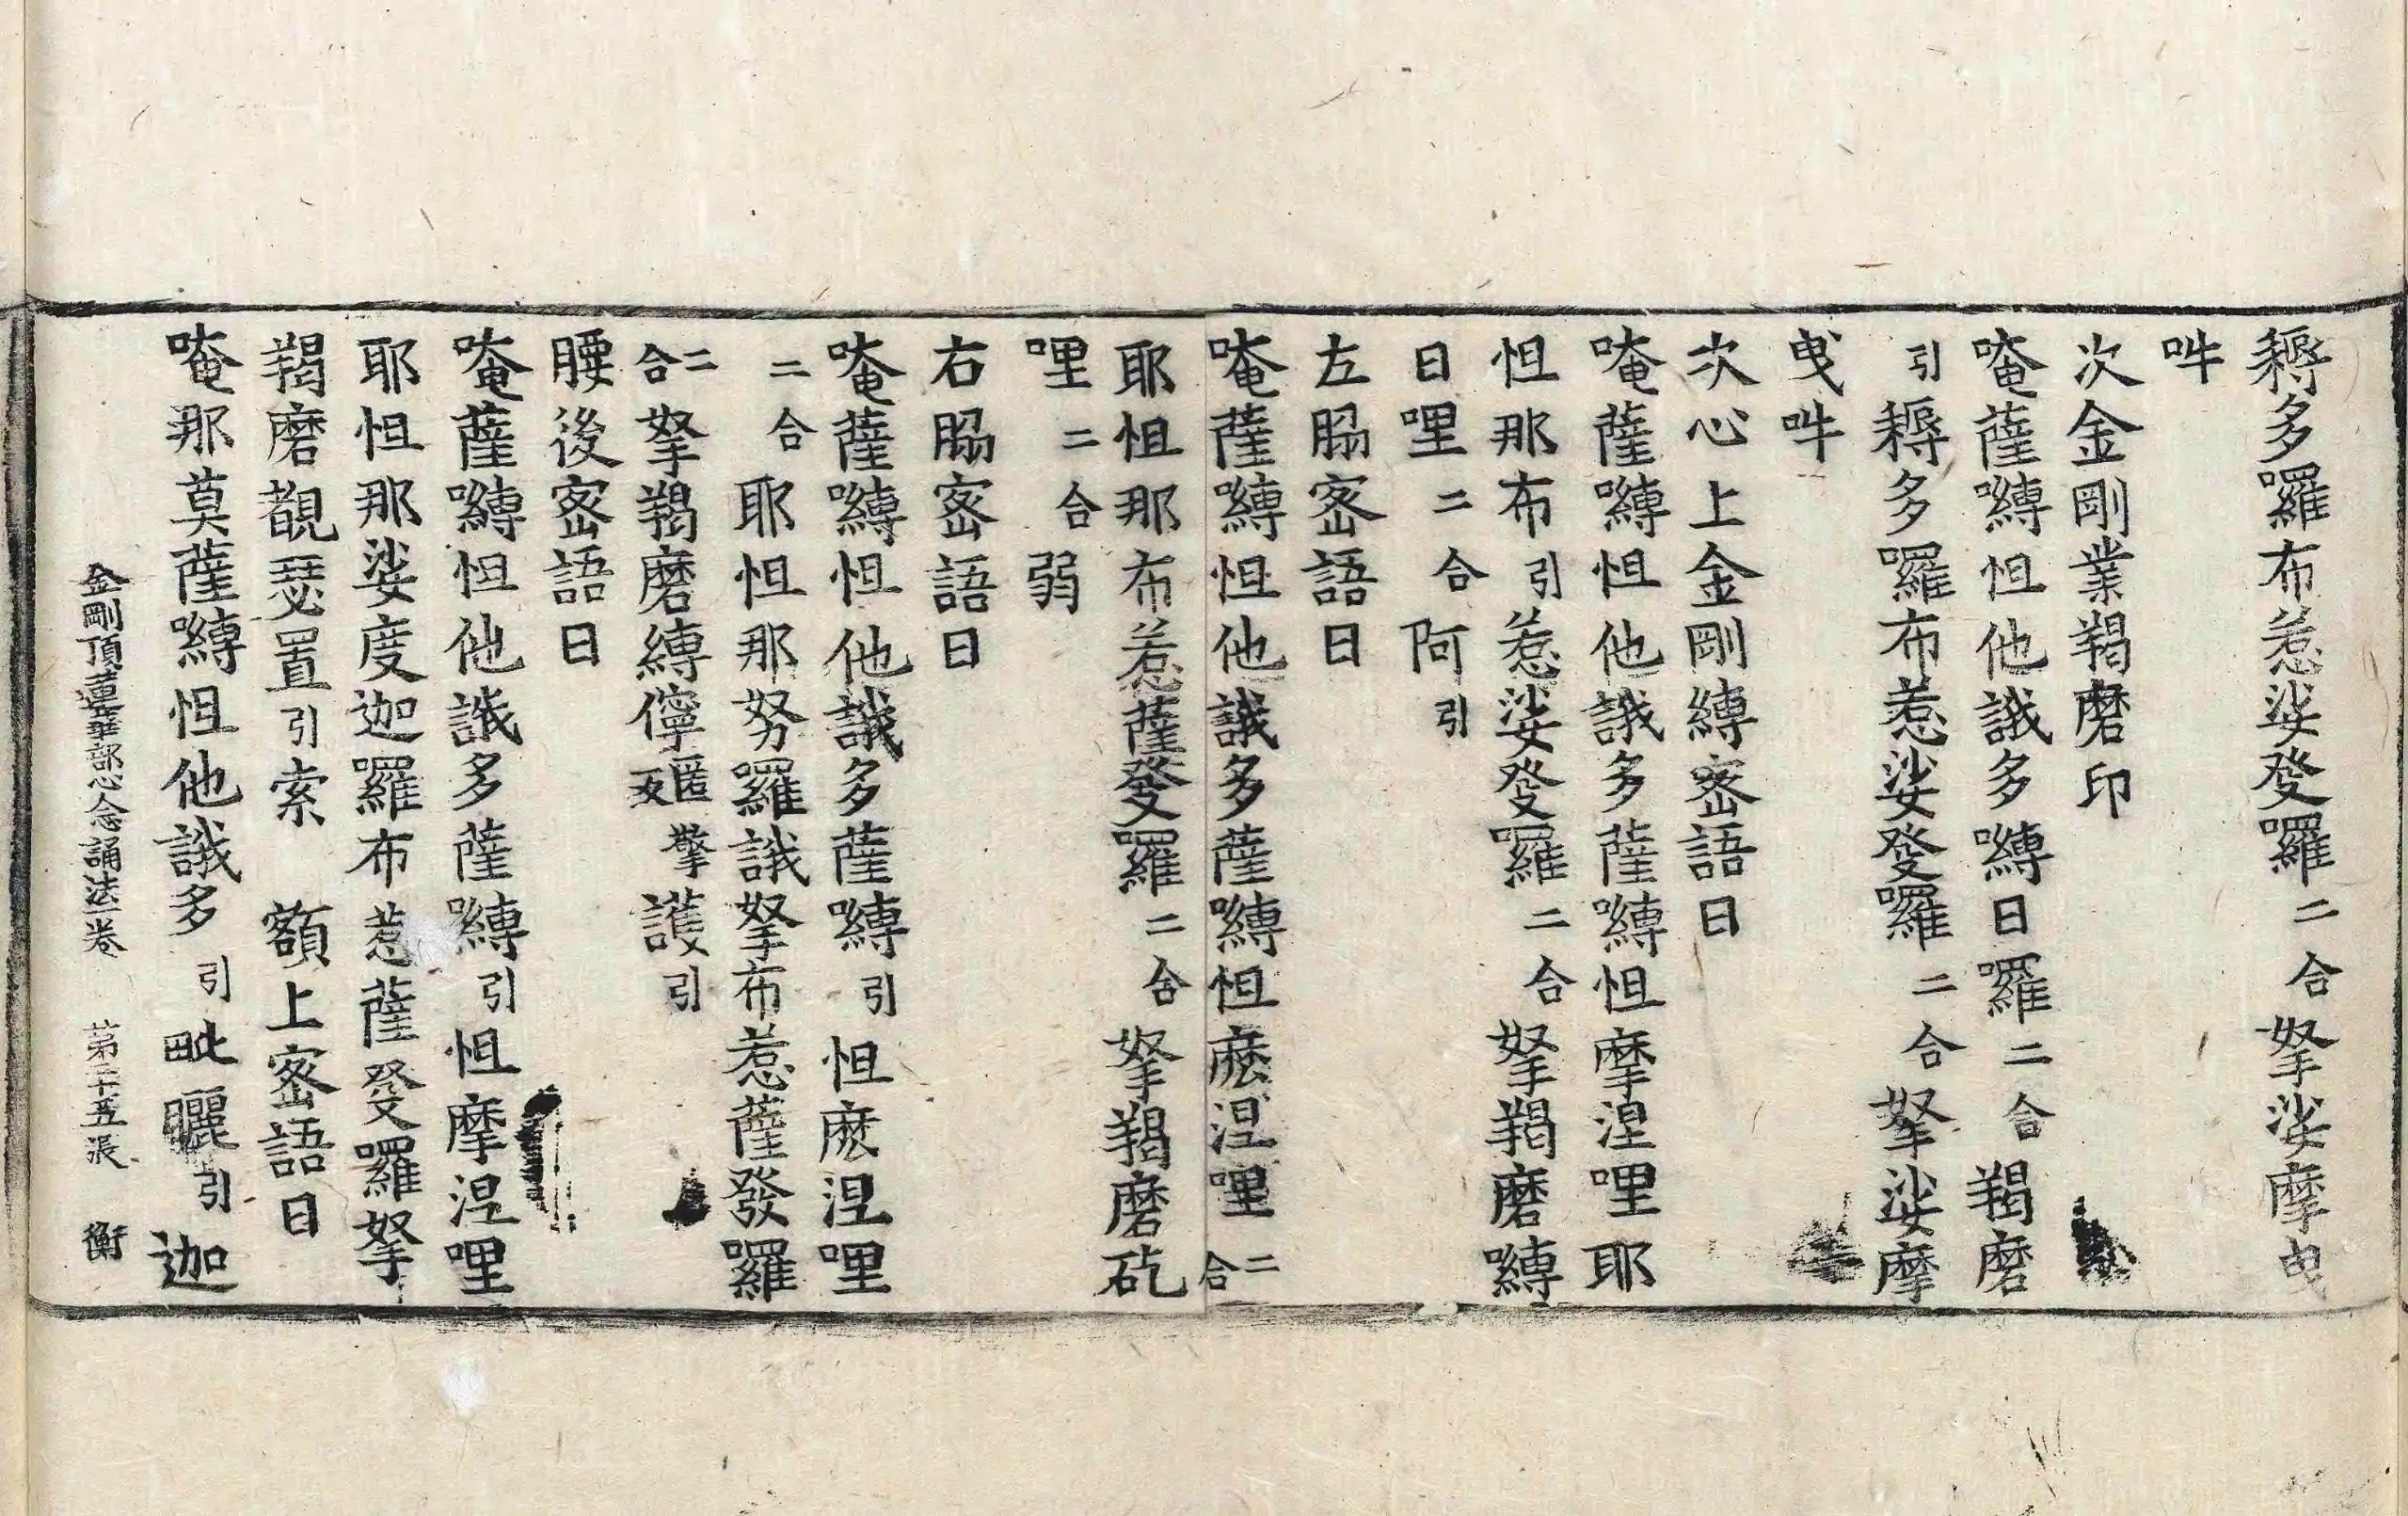 耨多囉布惹娑發囉二合拏娑摩曳
吽
次金剛業羯磨印
唵薩嚩怛他誐多嚩日囉二合羯磨
引耨多囉布惹娑發囉二合拏娑摩
曳吽
次心上金剛縛密語曰
唵薩嚩怛他誐多薩嚩怛摩涅哩耶
怛那布引惹娑發囉二合拏羯磨嚩
日哩二合阿引
左脇密語曰
唵薩嚩怛他誐多薩嚩怛麽涅哩二合
耶怛那布惹薩發囉二合拏羯磨矻
哩二合弱
右脇密語曰
唵薩嚩怛他誐多薩嚩引怛麽涅哩
二合耶怛那努囉誐拏布惹薩發囉
二合拏羯磨縛儜匿擎反護引
腰後密語曰
唵薩嚩怛他誐多薩嚩引怛摩涅哩
耶怛那娑度迦囉布惹薩發囉拏
羯磨覩瑟置引索 額上密語曰
唵那莫薩嚩怛他誐多引毗曬引迦
金剛頂蓮華部心念誦法一卷 第二十五張 衡